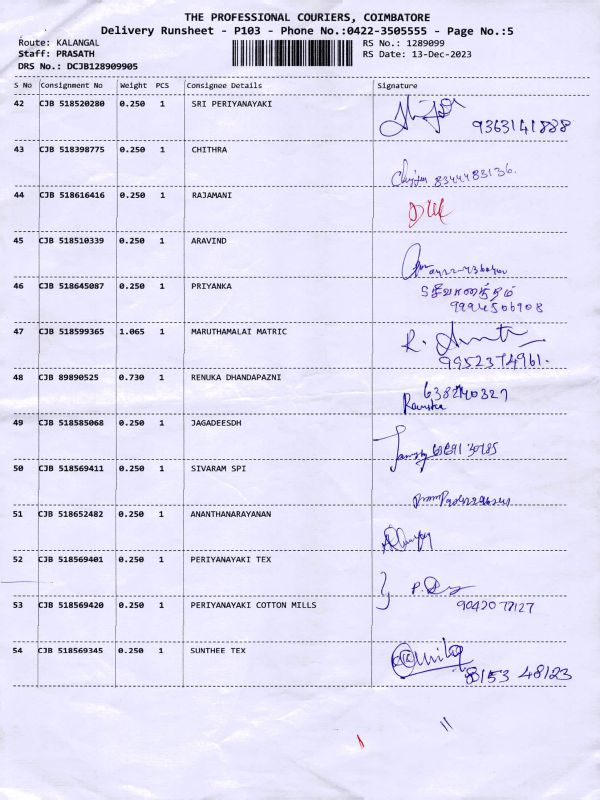 THE PROFESSIONAL COURIERS, COIMBATORE
Delivery Runsheet - P103 - Phone No.:0422-3505555 - Page No.:5
Route: KALANGAL
RS No.: 1289099
Staff: PRASATH
RS Date: 13-Dec-2023
DRS No.: DCJB128909905
S No Consignment No Weight PCS Consignee Details Signature
42 CJB 518520280 0.250 1 SRI PERIYANAYAKI
9363141888
43 CJB 518398775 0.250 1 CHITHRA
8344483136.
44 CJB 518616416 0.250 1 RAJAMANI
45 CJB 518510339 0.250 1 ARAVIND
46 CJB 518645087 0.250 1 PRIYANKA
9994506908
47 CJB 518599365 1.065 1 MARUTHAMALAI MATRIC
R.
9952374961.
48 CJB 89890525 0.730 1 RENUKA DHANDAPAZNI
49 CJB 518585068 0.250 1 JAGADEESDH
50 CJB 518569411 0.250 1 SIVARAM SPI
51 CJB 518652482 0.250 1 ANANTHANARAYANAN
52 CJB 518569401 0.250 1 PERIYANAYAKI TEX
53 CJB 518569420 0.250 1 PERIYANAYAKI COTTON MILLS
54 CJB 518569345 0.250 1 SUNTHEE TEX
8153 48123